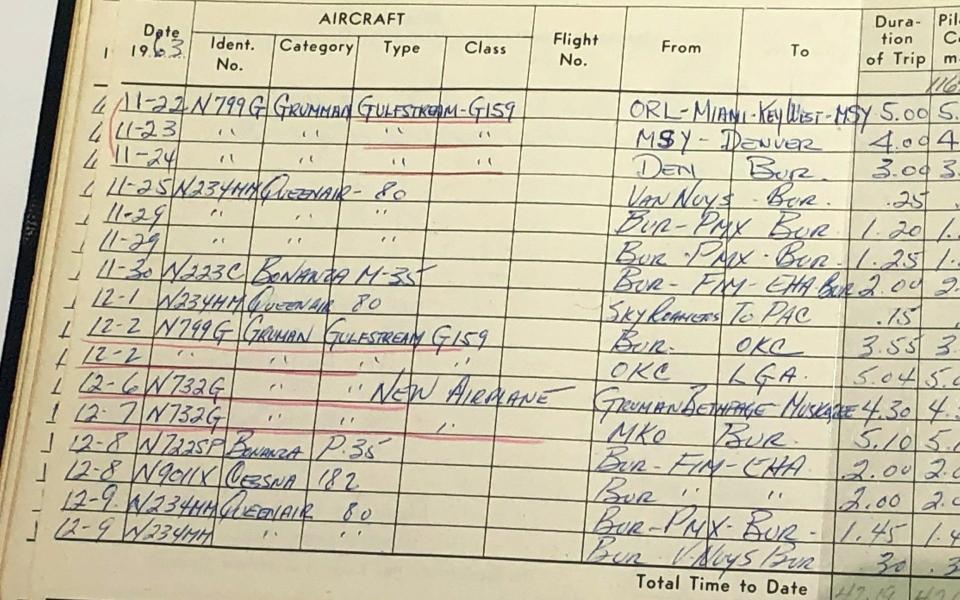 AIRCRAFT
Date 1963 Ident. No. Category Type Class Flight No. From To Dura- tion of Trip
11-22 N799G GRUMMAN GULFSTREAM-G159 ORL-MIAMI-KEY WEST-MSY 5.00 5.
11-23 " " " " MSY - DENVER 4.00 4
11-24 " " " " DEN BUR. 3.00 3.
11-25 N234HM QUEENAIR - 80 VAN NUYS - BUR. .25
11-29 " " " BUR-PMX BUR. 1.20 1.
11-29 " " " BUR-PMX-BUR. 1.25 1.
11-30 N223C BONANZA M-35 BUR-FIM-EHA-BUR 2.00 2.
12-1 N234HM QUEENAIR 80 SKYROAMERS TO PAC .15
12-2 N799G GRUMAN GULFSTREAM G159 BUR. OKC 3.55 3.
12-2 " " " " OKC LGA. 5.04 5.0
12-6 N732G " " NEW AIRPLANE GRUMAN BETHPAGE-MUSKOGEE 4.30 4.
12-7 N732G " " " MKO BUR. 5.10 5.1
12-8 N722SP BONANZA P.35 BUR-FIM-EHA 2.00 2.0
12-8 N9011X CESSNA 182 BUR " " 2.00 2.0
12-9. N234HM QUEENAIR 80 BUR-PMX-BUR- 1.45 1.4
12-9 N234HM " " BUR V-NUYS BUR 30 .3
Total Time to Date